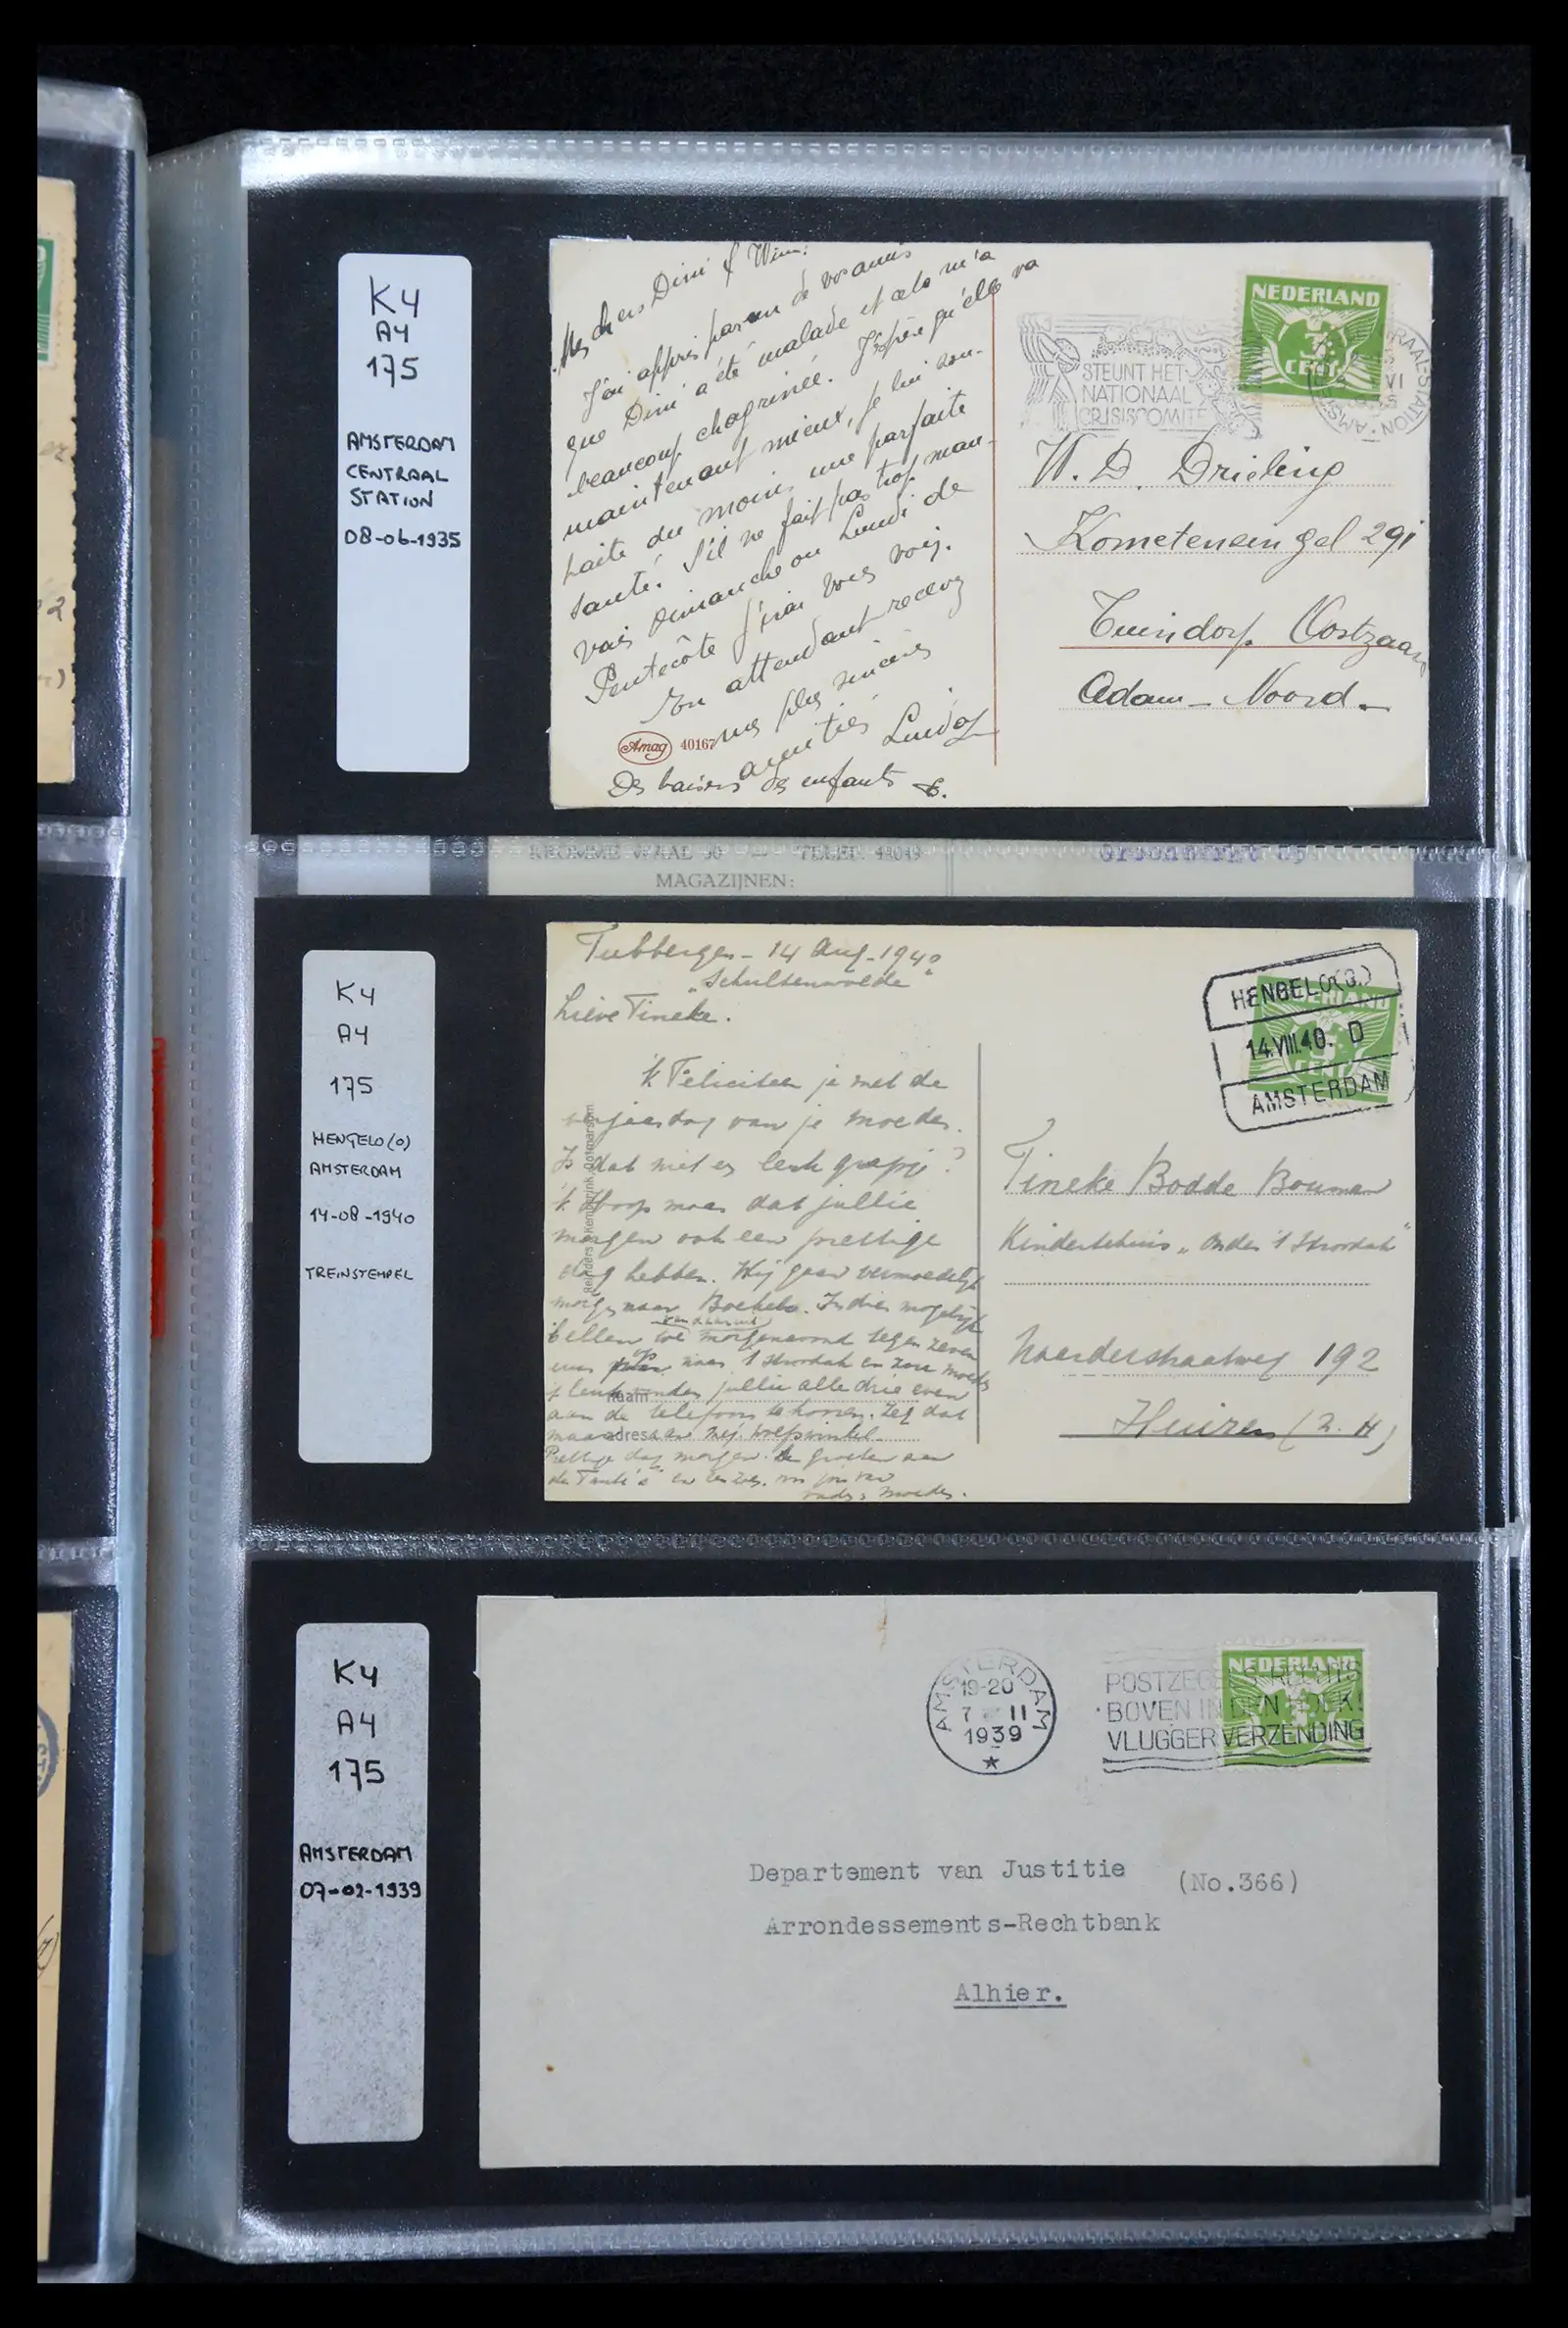 K4
A4
175
AMSTERDAM
CENTRAAL
STATION
08-06-1935
Mes chers Dini & Wim:
J'ai appris par un de vos amis
que Dini a été malade et cela m'a
beaucoup chagrinée. J'espère qu'elle va
maintenant mieux, je lui sou-
haite du moins une parfaite
santé. S'il ne fait pas trop mau-
vais Dimanche ou Lundi de
Pentecôte j'irai vous voir.
En attendant recevez
mes plus sincères
amitiés
Des baisers des enfants
Amag 40167
STEUNT HET
NATIONAAL
CRISISCOMITE
NEDERLAND
CENT
W. D. Drieling
Kometensingel 291
Tuindorp Oostzaan
Adam - Noord -
KROMME WAAL 50 — TELEF. 48049
MAGAZIJNEN:
K4
A4
175
HENGELO (O)
AMSTERDAM
14-08-1940
TREINSTEMPEL
Tubbergen - 14 Aug. 1940
Lieve Tineke.
'k Feliciteer je met de
verjaardag van je moeder.
Is dat niet een leuk grapje?
'k Hoop maar dat jullie
morgen ook een prettige
dag hebben. Wij gaan vermoedelijk
morgen naar Boekelo. Indien mogelijk
bellen we morgenavond tegen zeven
uur op naar 't Strodak en zou moeder
't leuk vinden jullie alle drie even
aan de telefoon te horen. Zeg dat
maar aan mej.
Prettige dag morgen. de groeten aan
de Tante's en
vader, moeder.
naam
adres
HENGELO(O.)
14.VIII.40. D
AMSTERDAM
Tineke Bodde Bouman
Kindertehuis „Onder 't Strodak"
Naarderstraatweg 192
Huizen (N. H)
K4
A4
175
AMSTERDAM
07-02-1939
AMSTERDAM
19-20
7 II
1939
POSTZEGELS RECHTS
BOVEN IN DEN HOEK!
VLUGGER VERZENDING
NEDERLAND
Departement van Justitie (No.366)
Arrondessements-Rechtbank
Alhier.